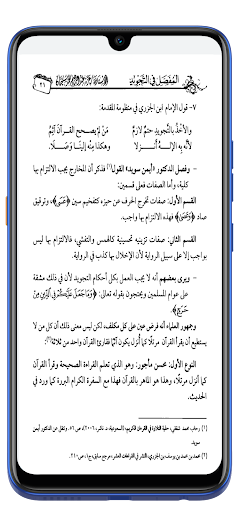 المفصل في التجويد
٢١
٧- قول الإمام ابن الجزري في منظومة المقدمة:
والأخذُ بالتَّجويدِ حتمٌ لازمُ مَنْ لم يصححِ القرآنَ آثِمُ
لأنَّه بهِ الإلــهُ أنْــزلا وهكذا منْه إلينا وَصَــلا.
- وفصل الدكتور «أيمن سويد» القول(١) فذكر أن المخارج يجب الالتزام بها
كلية، وأما الصفات فعلى قسمين:
القسم الأول: صفات تخرج الحرف عن حيزه كتفخيم سين ﴿عَسَى﴾، وترقيق
صاد فهذه الالتزام بها واجب.
القسم الثاني: صفات تزيينية تحسينية كالهمس والتفشي، فالالتزام بها ليس
بواجب إلا على سبيل الرواية لأن الإخلال بها كذب في الرواية.
- ويرى بعضهم أنه لا يجب العمل بكل أحكام التجويد لأن في ذلك مشقة
على عوام المسلمين ويحتجون بقوله تعالى: ﴿وَمَا جَعَلَ عَلَيْكُمْ فِي الدِّينِ مِنْ
حَرَجٍ﴾.
وجمهور العلماء أنه فرض عين على كل مكلف، لكن ليس معنى ذلك أن كل من لا
يستطيع أن يقرأ القرآن مرتلًا كما أُنزل يكون آثمًا فقارئ القرآن واحد من ثلاثة(٢):
النوع الأول: محسن مأجور: وهو الذي تعلم القراءة الصحيحة وقرأ القرآن
كما أُنزل مرتلًا، وهذا هو الماهر بالقرآن فهذا مع السفرة الكرام البررة كما ورد في
الحديث.
(١) رحاب محمد شققي، حلية التلاوة في القرآن الكريم، السعودية، د. ناشر، ٢٠٠٦م، ص ٥٦، ونقل عن الدكتور أيمن
سويد.
(٢) محمد بن محمد بن يوسف بن الجزري، النشر في القراءات العشر، مرجع سابق، ج١، ص ٢١٠.